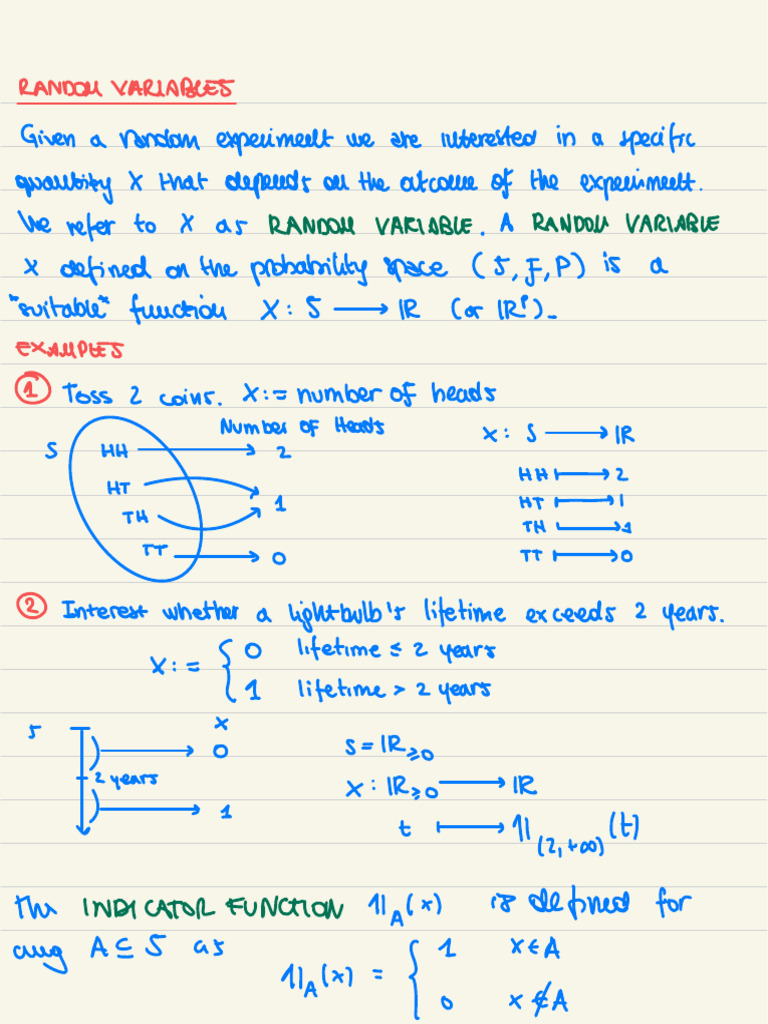 RANDOM VARIABLES
Given a random experiment we are interested in a specific
quantity X that depends on the outcome of the experiment.
We refer to X as RANDOM VARIABLE. A RANDOM VARIABLE
X defined on the probability space (S, F, P) is a
"suitable" function X: S ⟶ ℝ (or ℝᵖ).
EXAMPLES
① Toss 2 coins. X := number of heads
Number of Heads
S HH ⟶ 2
HT ⟶ 1
TH ⟶
TT ⟶ 0
X: S ⟶ ℝ
HH ⟼ 2
HT ⟼ 1
TH ⟼ 1
TT ⟼ 0
② Interest whether a lightbulb's lifetime exceeds 2 years.
X := { 0 lifetime ≤ 2 years
1 lifetime > 2 years
S X
⟶ 0
2 years
⟶ 1
S = ℝ≥0
X: ℝ≥0 ⟶ ℝ
t ⟼ 𝟙(2,+∞)(t)
The INDICATOR FUNCTION 𝟙A(x) is defined for
any A ⊆ S as
𝟙A(x) = { 1 x ∈ A
0 x ∉ A